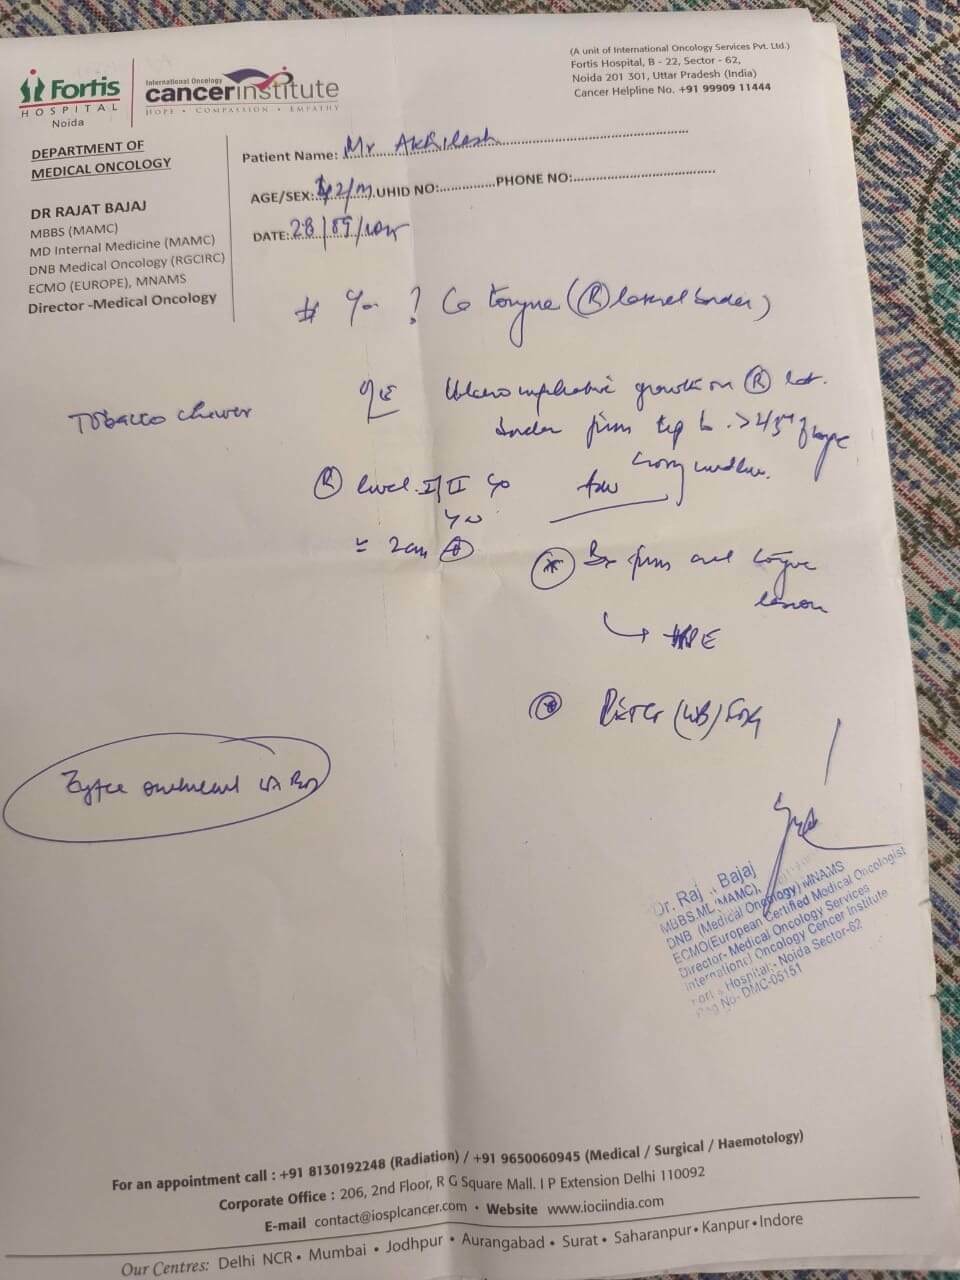 Fortis
HOSPITAL
Noida
International Oncology
cancerinstitute
HOPE • COMPASSION • EMPATHY
(A unit of International Oncology Services Pvt. Ltd.)
Fortis Hospital, B - 22, Sector - 62,
Noida 201 301, Uttar Pradesh (India)
Cancer Helpline No. +91 99909 11444
DEPARTMENT OF
MEDICAL ONCOLOGY
DR RAJAT BAJAJ
MBBS (MAMC)
MD Internal Medicine (MAMC)
DNB Medical Oncology (RGCIRC)
ECMO (EUROPE), MNAMS
Director -Medical Oncology
Patient Name: Mr Akhilesh
AGE/SEX: 42/M UHID NO: PHONE NO:
DATE: 28/09/
? Ca tongue (R lateral border)
Tobacco chewer
growth on R lat.
border from tip to
R level I/II
≃ 2cm
Bx from oral tongue
lesion
↳ HPE
(WB)
Dr. Raj Bajaj
MBBS, (MAMC),
DNB (Medical Oncology) MNAMS
ECMO(European Certified Medical Oncologist
Director- Medical Oncology Services
International Oncology Cencer Institute
Hospital:- Noida Sector-62
No- DMC-05151
For an appointment call : +91 8130192248 (Radiation) / +91 9650060945 (Medical / Surgical / Haemotology)
Corporate Office : 206, 2nd Floor, R G Square Mall. I P Extension Delhi 110092
E-mail contact@iosplcancer.com • Website www.iociindia.com
Our Centres: Delhi NCR • Mumbai • Jodhpur • Aurangabad • Surat • Saharanpur • Kanpur • Indore